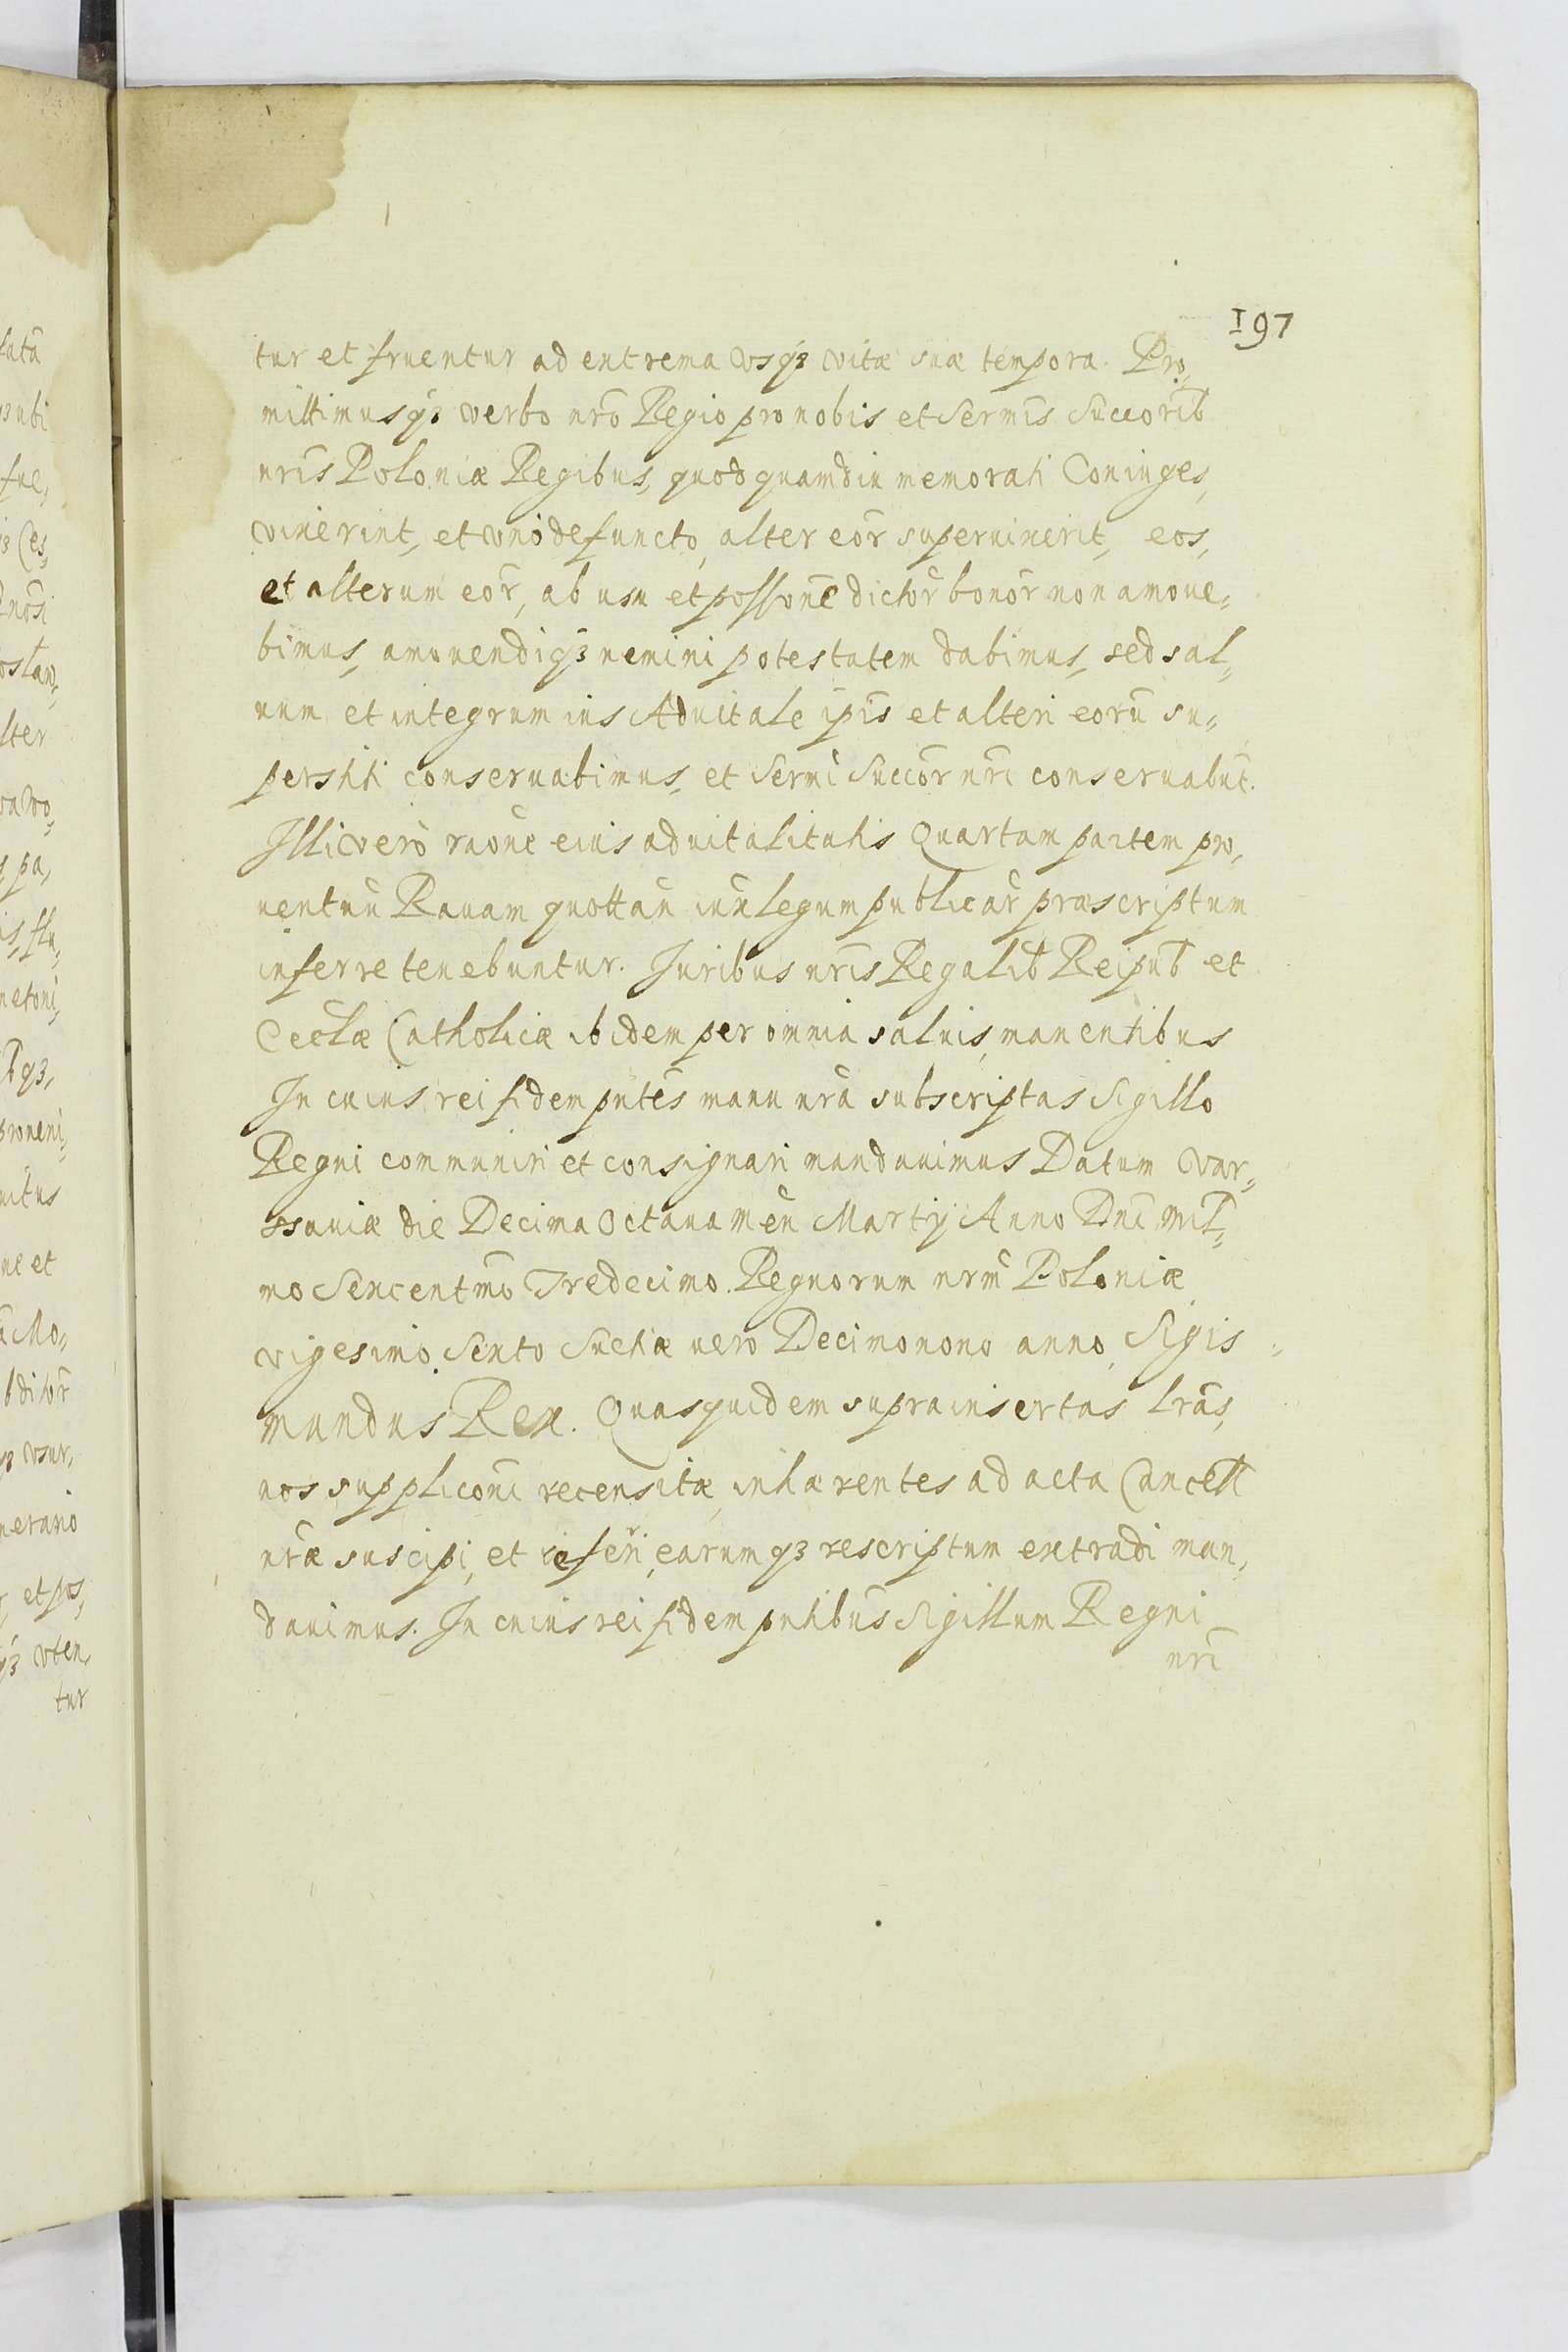 197
tur et fruentur ad extrema vsqȝ vitæ suæ tempora. Pro,
mittimusqȝ verbo nr̃o Regio pro nobis et Sermis Succorib
nris Poloniæ Regibus, quod quamdiu memorati Coniuges,
vixerint, et vno defuncto, alter eor̃ superuixerit, eos,
et alterum eor̃, ab usu et possone dictor̃ bonor̃ non amoue,,
bimus, amouendiqȝ nemini potestatem dabimus, sed sal,,
uum et integrum ius Aduitale ip̃is et alteri eorũ su,,
perstiti conseruabimus, et Sermi Succor̃ nr̃i conseruabũt.
Illi vero raõne eius aduitalitatis Quartam partem pro,
uentuũ Rauam quottañ iux legum publicar̃ præscriptum
inferre tenebuntur. Juribus nr̃is Regalib Reipub et
Eccl̃æ Catholicæ ibidem per omnia saluis, manentibus
In cuius rei fidem pñtes manu nr̃a subscriptas Sigillo
Regni communiri et consignari mandauimus Datum Var,,
ssauiæ die Decima Octaua Meñ Martij Anno Dñi Mill,,
mo Sexcentmõ Tredecimo. Regnorum nr̃m Poloniæ
vigesimo Sexto Suetiæ uero Decimonono anno, Sigis,,
mundus Rex. Quas quidem suprainsertas lr̃as,
nos supplicõni recensitæ, inhærentes ad acta Cancell
nr̃æ suscipi, et referri, earumqȝ rescriptum extradi man,
dauimus. In cuius rei fidem pñtibus Sigillum Regni
nr̃i
fatã
qȝ ubi
fue,
oslaw,
lter
pa,
netoni,
proueni,
uitus
ne et
Mo,,
bditor̃
qȝ vsur,
nerario
et pos,
qȝ vten,
tur